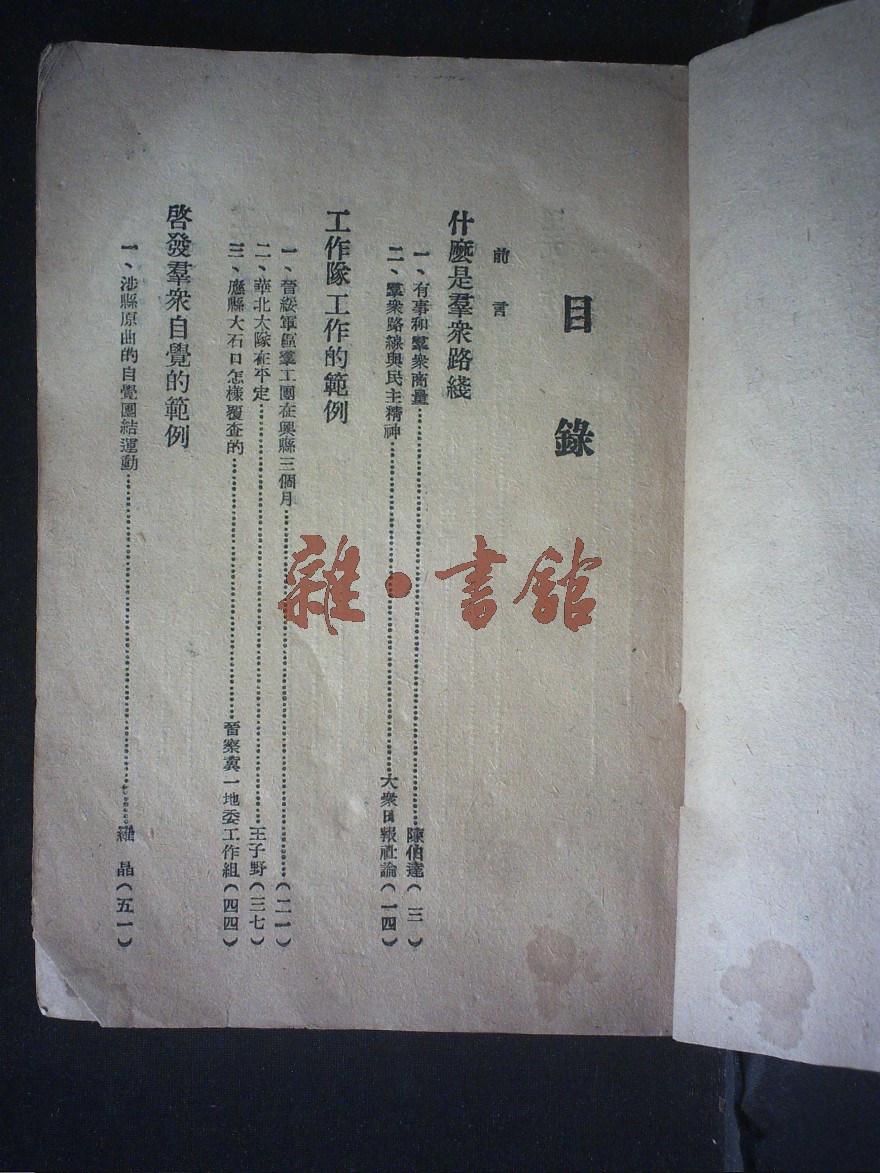 目錄
前言
什麽是羣衆路綫
一、有事和羣衆商量……陳伯達(三)
二、羣衆路綫與民主精神……大衆日報社論(一四)
工作隊工作的範例
一、晉綏軍區羣工團在興縣三個月……(二一)
二、華北大隊在平定……王子野(三七)
三、應縣大石口怎樣覆查的……晉察冀一地委工作組(四四)
啓發羣衆自覺的範例
一、涉縣原曲的自覺團結運動……羅晶(五一)
雜·書館